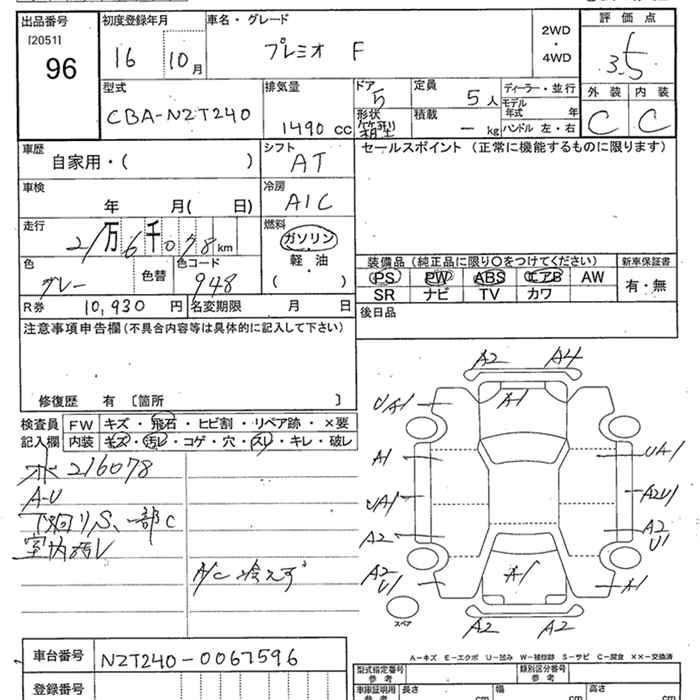 出品番号 初度登録年月 車名・グレード 2WD・4WD 評価点
[2051]
96
16 10月 プレミオ F 3.5
型式 排気量 ドア 定員 ディーラー・並行 外装 内装
CBA-NZT240 1490 cc 5 5人 モデル年式 年 C C
形状 箱型 積載 - kg ハンドル 左・右
車歴 シフト セールスポイント (正常に機能するものに限ります)
自家用・( ) AT
車検 冷房
年 月( 日) A/C
走行 燃料
21万6千078km ガソリン
軽・油
( )
色 色替 カラーコード 装備品(純正品に限り○をつけてください) 新車保証書
グレー 948 PS PW ABS エアB AW 有・無
SR ナビ TV カワ
R券 10,930円 名変期限 月 日 後日品
注意事項申告欄(不具合内容等は具体的に記入して下さい)
修復歴 有 [箇所 ]
検査員 FW キズ・飛石・ヒビ割・リペア跡・×要
記入欄 内装 キズ・汚レ・コゲ・穴・スレ・キレ・破レ
メ 216078
A-U
下廻りS、一部C
室内汚レ
A/C 冷えず
A2 A4
UA1 A1
A1 UA1
UA1 A2U1
A2 A2 U1
A2 U1 A1 A1
スペア
A2 A2
A-キズ E-エクボ U-凹み W-補修跡 S-サビ C-腐食 XX-交換済
車台番号 NZT240-0067596
登録番号
型式指定番号 参考 類別区分番号 参考
車庫証明用 参考 長さ cm 幅 cm 高さ cm